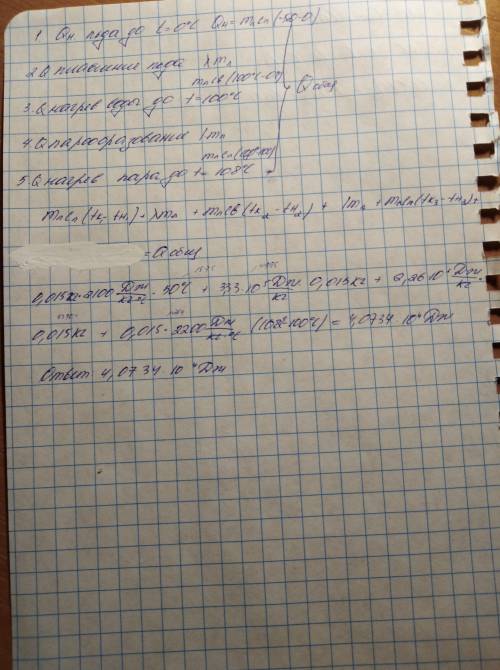 1 Qн льда до t=0°C Qн=mлcл(-50-0)
2 Q плавление льда λmл
3. Q нагрев воды до t=100°C mлcв(100°C-0°) Qобщ
4 Q парообразование Lmл
5. Q нагрев пара до t=108°C
mлcл(tк₁-tн₁)+λmл + mлcв(tк₂-tн₂) + Lmл +
=Qобщ
0,015кг·2100 Дж/кг·°C · 50°C + 3,3·10⁵ Дж/кг · 0,015кг +
0,015кг + 0,015·2200 Дж/кг·°C (108°-100°C) = 4,0734·10⁴ Дж
Ответ: 4,0734·10⁴ Дж